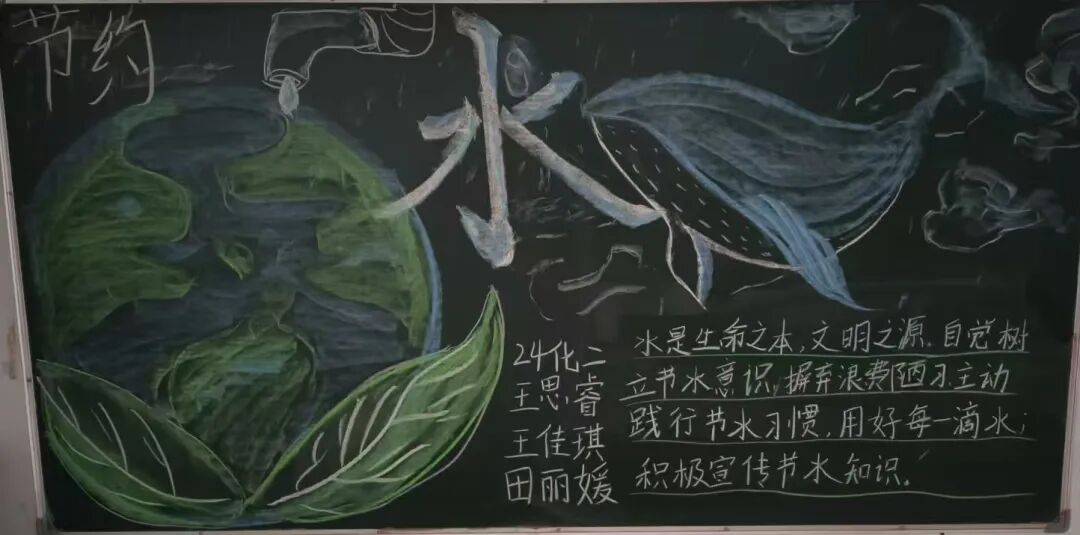 节约
水
24化二
王思睿
王佳琪
田丽媛
水是生命之本,文明之源.自觉树
立节水意识,摒弃浪费陋习.主动
践行节水习惯,用好每一滴水;
积极宣传节水知识.